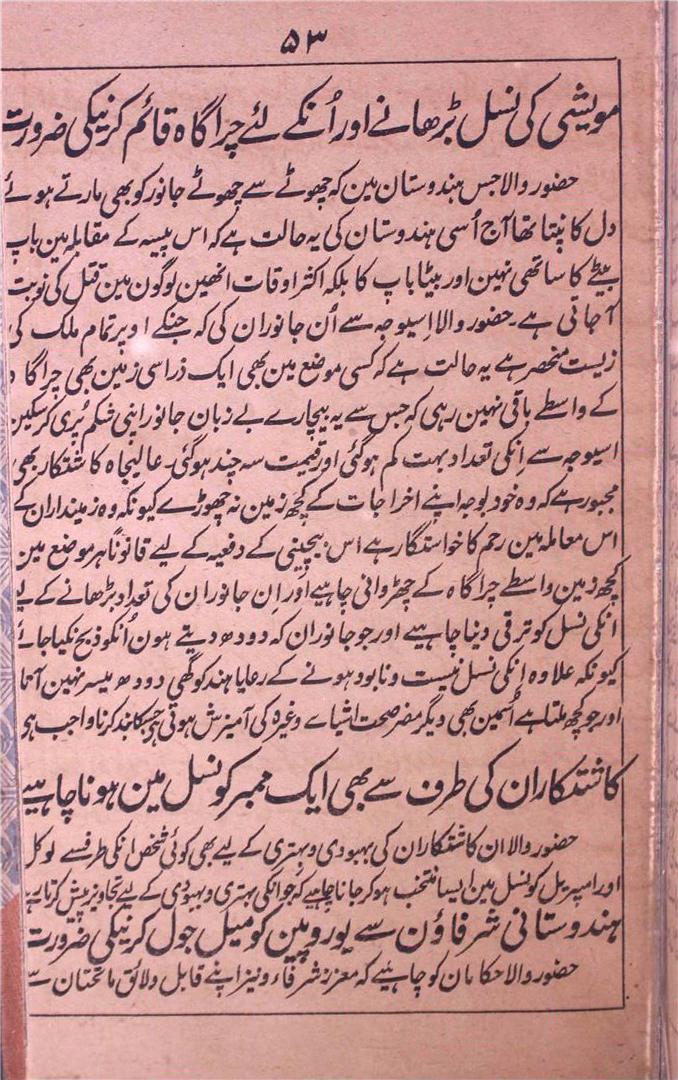 ۵۳
مویشی کی نسل بڑھانے اور اُنکے لئے چراگاہ قائم کرنیکی ضرورت
حضور والا جس ہندوستان مین کہ چھوٹے سے چھوٹے جانور کو بھی مارتے ہوئے
دل کانپتا تھا آج اُسی ہندوستان کی یہ حالت ہے کہ اس پیسہ کے مقابلہ مین باپ
بیٹے کا ساتھی نہین اور بیٹا باپ کا بلکہ اکثر اوقات انھین لوگون مین قتل کی نوبت
آجاتی ہے۔ حضور والا اسیوجہ سے اُن جانوران کی کہ جنکے اوپر تمام ملک کی
زیست منحصر ہے یہ حالت ہے کہ کسی موضع مین بھی ایک ذرا سی زمین بھی چراگاہ
کے واسطے باقی نہین رہی کہ جس سے یہ بیچارے بے زبان جانور اپنی شکم پُری کرسکین
اسیوجہ سے اِنکی تعداد بہت کم ہوگئی اور قیمت سہ چند ہوگئی۔ عالیجاہ کاشتکار بھی
مجبور ہے کہ وہ خود بوجہ اپنے اخراجات کے کچھ زمین نہ چھوڑے کیونکہ وہ زمینداران کے
اس معاملہ مین رحم کا خواستگار ہے اس بیچینی کے دفعیہ کے لیے قانوناً ہر موضع مین
کچھ زمین واسطے چراگاہ کے چھڑوانی چاہیے اور اِن جانوران کی تعداد بڑھانے کے لیے
انکی نسل کو ترقی دینا چاہیے اور جو جانوران کہ دودھ دیتے ہون اُنکو ذبح نکیا جائے
کیونکہ علاوہ اِنکی نسل نیست و نابود ہونے کے رعایا ہند کو گھی دودھ میسر نہین آتا
اور جو کچھ ملتا ہے اُسمین بھی دیگر مضر صحت اشیاے وغیرہ کی آمیزش ہوتی ہی جسکا بند کرنا واجب ہی
کاشتکاران کی طرف سے بھی ایک ممبر کونسل مین ہونا چاہیے
حضور والا ان کاشتکاران کی بہبودی و بہتری کے لیے بھی کوئی شخص انکی طرفسے لوکل
اور امپریل کونسل مین ایسا منتخب ہوکر جانا چاہیے کہ جو انکی بہتری و بہبودی کے لیے تجاویز پیش کرتا رہے
ہندوستانی شرفاؤن سے یوروپین کو میل جول کرنیکی ضرورت
حضور والا حکامان کو چاہیے کہ معزز شرفاء و نیز اپنے قابل و لائق ماتحتان سے